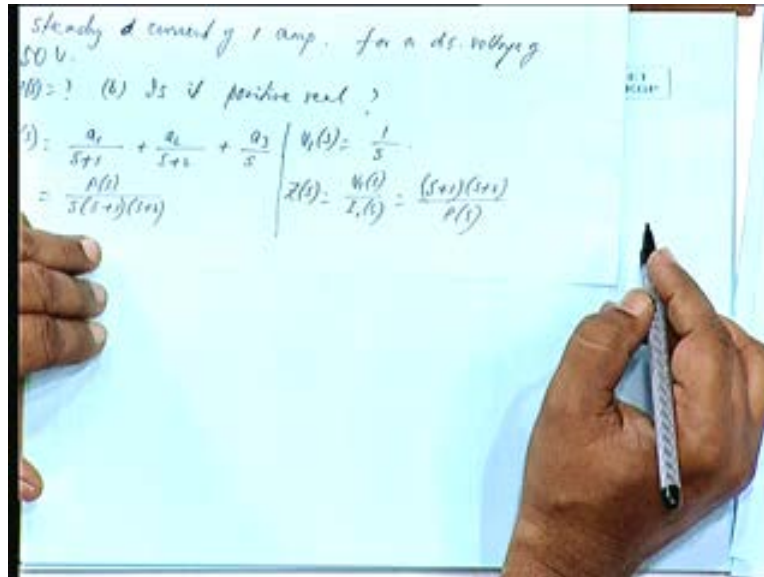 steady d current of 1 amp. for a d.c. voltage of
50 V.
(s) = ? (b) Is it positive real ?
(s) = a₁/(s+1) + a₂/(s+2) + a₃/s | V₁(s) = 1/s.
= P(s)/(s(s+1)(s+2)) | Z(s) = V₁(s)/I₁(s) = (s+1)(s+2)/P(s)
KGP